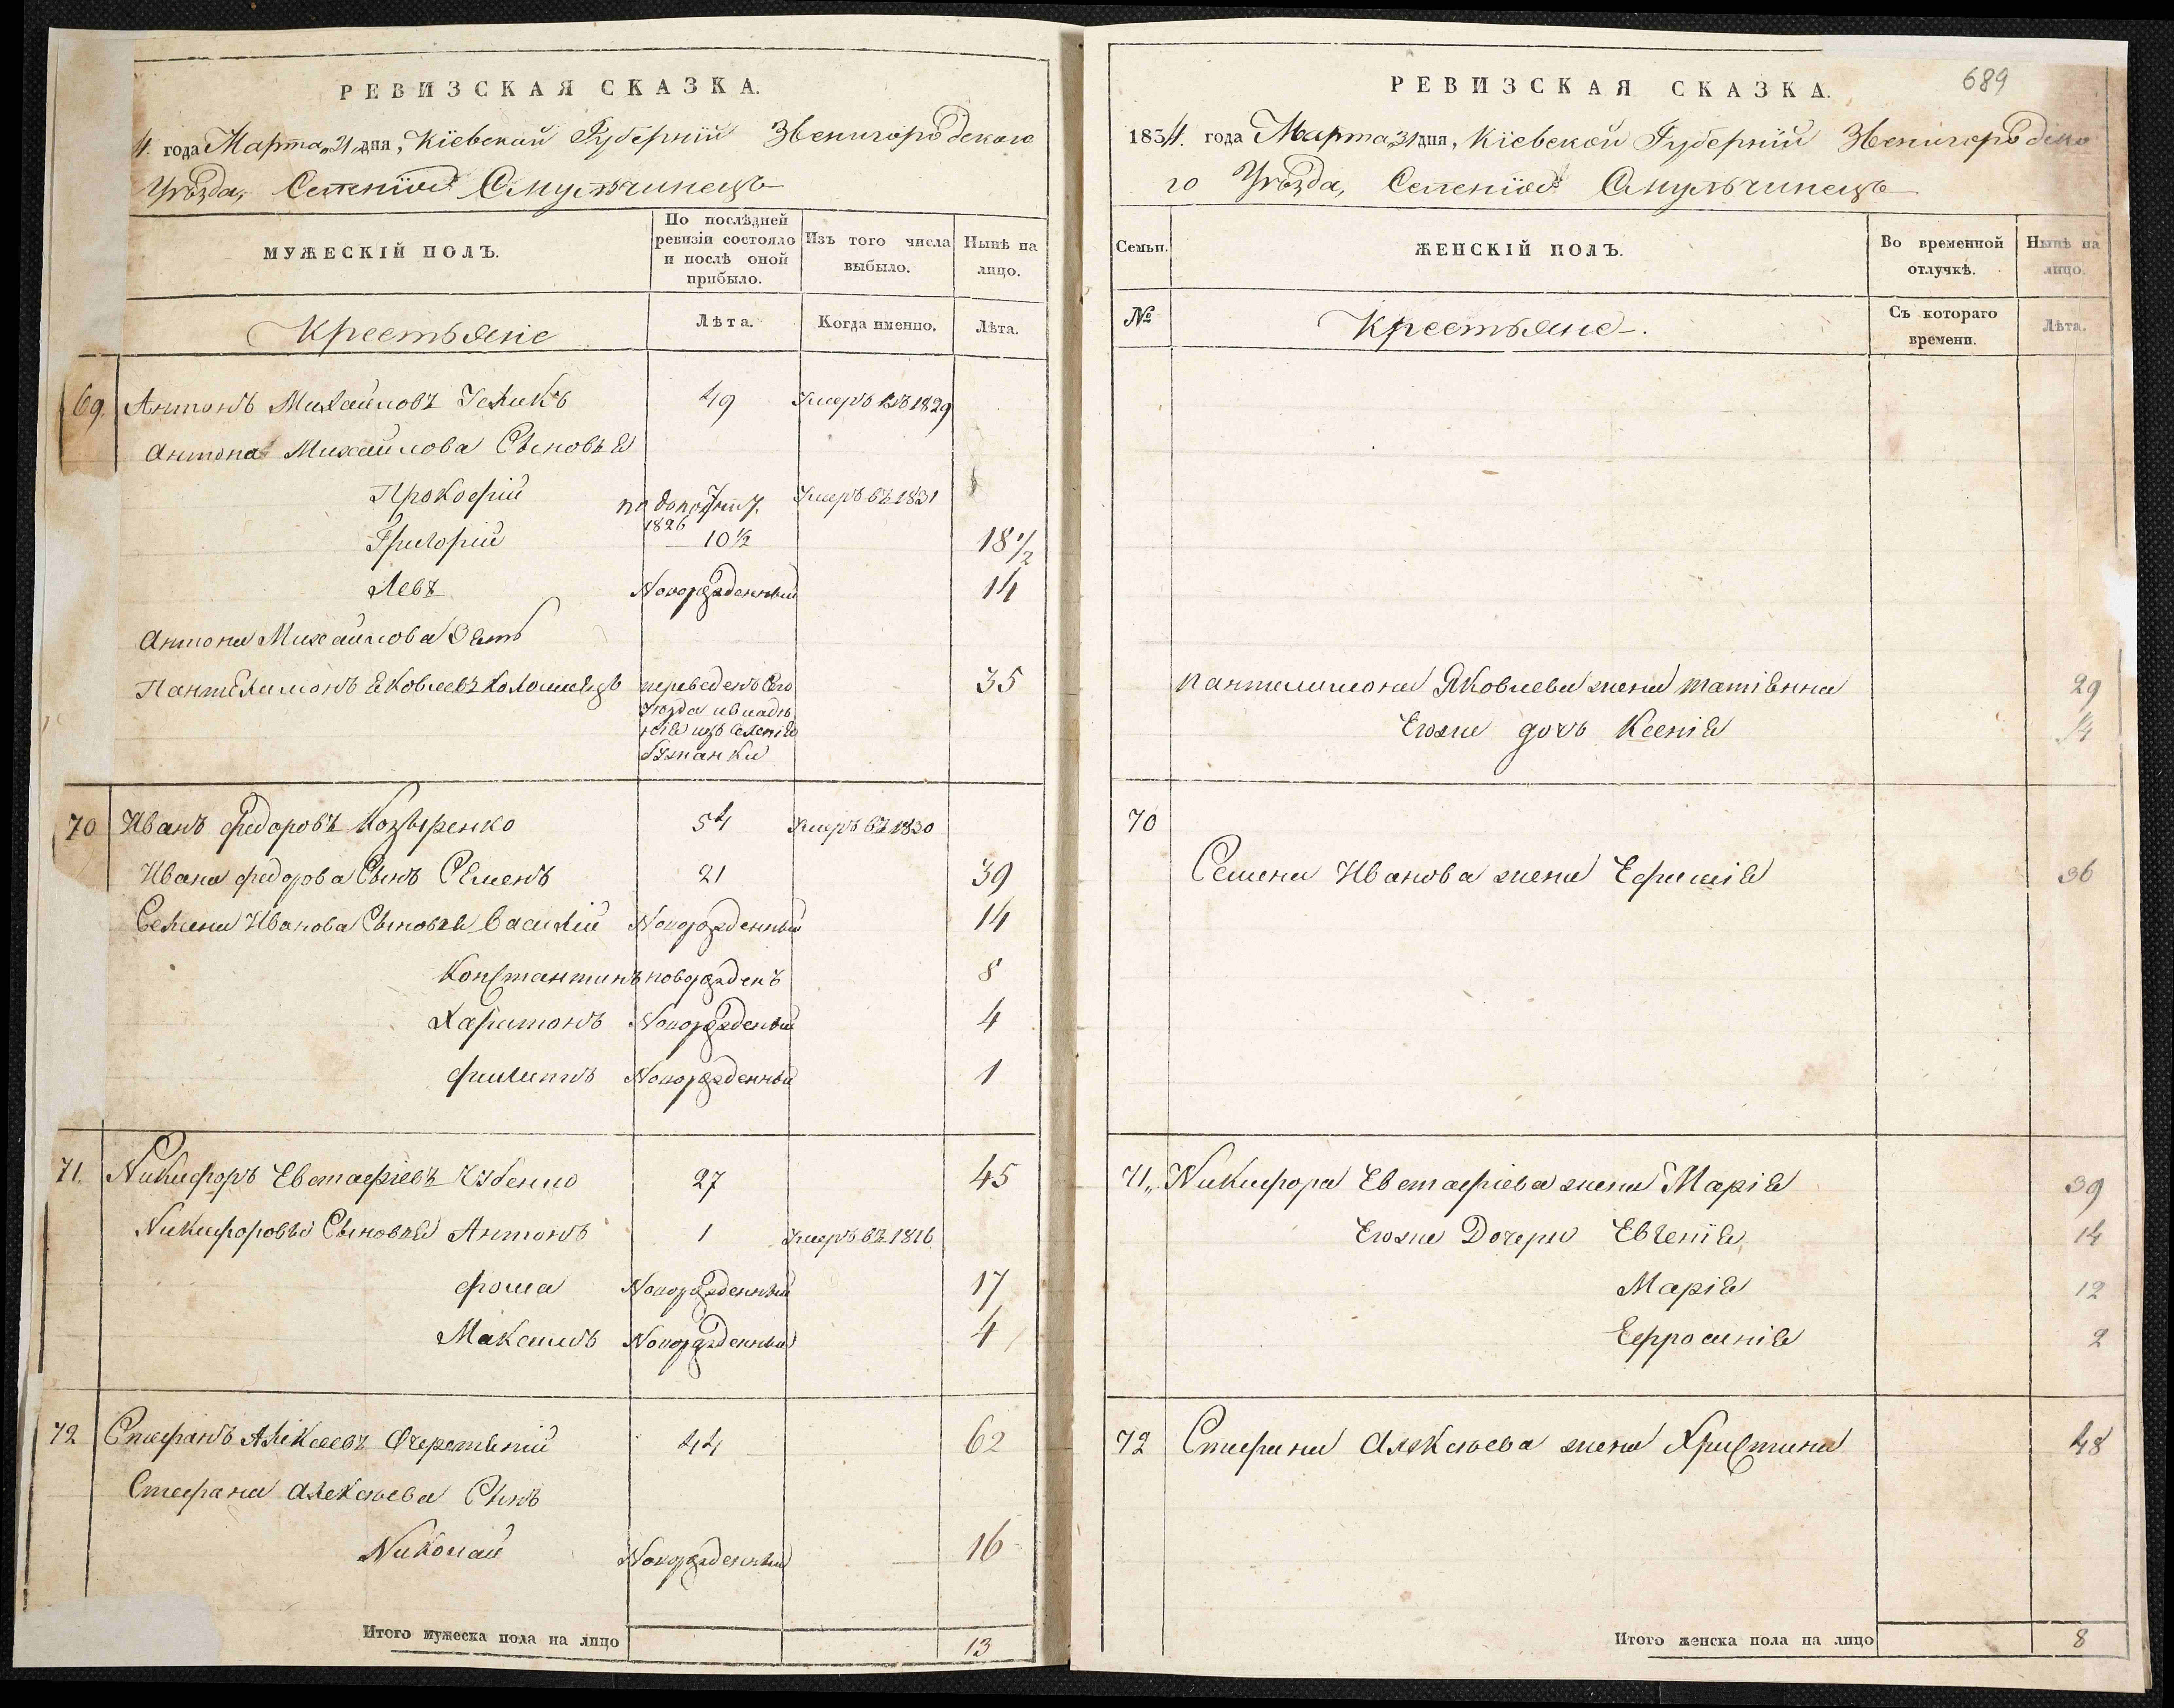 РЕВИЗСКАЯ СКАЗКА.
4. года Марта 31 дня, Кіевской Губерніи Звенигородскаго
Уѣзда, Селенія Смульчинецъ
МУЖЕСКІЙ ПОЛЪ.
По послѣдней ревизіи состояло и послѣ оной прибыло.
Изъ того числа выбыло.
Нынѣ на лицо.
Крестьяне
Лѣта.
Когда именно.
Лѣта.
69. Антонъ Михайловъ 49 Умеръ въ 1829
Антона Михайлова Сыновья
Прокофій 7 Умеръ въ 1831
Григорій 1826 10 ½ 18 1/2
Левъ Новорожденный 14
Антона Михайлова Зять
Пантелимонъ Яковлевъ Коломіецъ переведенъ 35
изъ селенія
70 Иванъ Федоровъ Козыренко 54 Умеръ въ 1830
Ивана Федорова Сынъ Семенъ 21 39
Семена Иванова Сыновья Василій Новорожденный 14
Константинъ новорожденъ 8
Харитонъ Новорожденый 4
Филипъ Новорожденный 1
71. Никифоръ Евстафіевъ 27 45
Никифоровы Сыновья Антонъ 1 Умеръ въ 1816
Фома Новорожденный 17
Максимъ Новорожденный 4
72 Стефанъ Алексеевъ 44 62
Стефана Алексѣева Сынъ
Николай Новорожденный 16
Итого мужеска пола на лицо 13
689
РЕВИЗСКАЯ СКАЗКА.
1834. года Марта 31 дня, Кіевской Губерніи Звенигородска
го Уѣзда, Селенія Смульчинецъ
Семьи.
ЖЕНСКІЙ ПОЛЪ.
Во временной отлучкѣ.
Нынѣ на лицо.
№
Крестьяне.
Съ котораго времени.
Лѣта.
Пантилимона Яковлева жена Татіянна 29
Егоже дочь Ксенія 14
70
Семена Иванова жена Ефимія 36
71,, Никифора Евстафіева жена Марія 39
Егоже Дочери Евгенія 14
Марія 12
Ефросинія 2
72 Стефана Алексѣева жена Христина 48
Итого женска пола на лицо 8